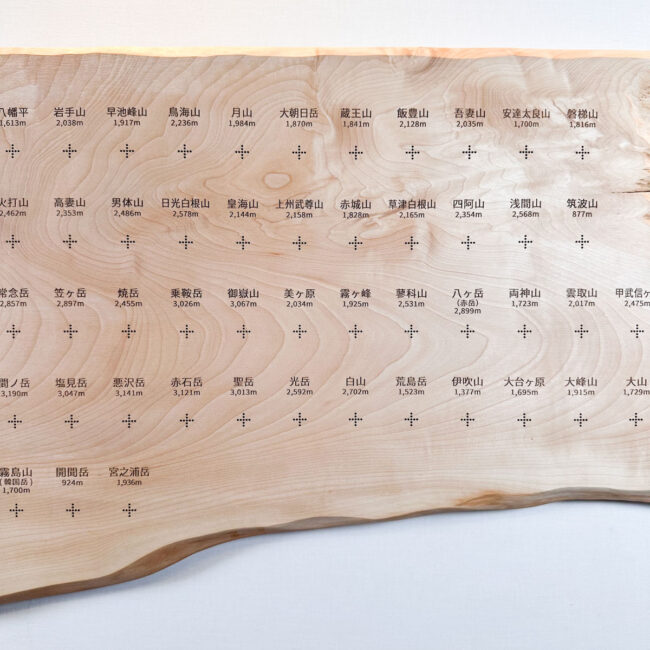 八幡平 岩手山 早池峰山 鳥海山 月山 大朝日岳 蔵王山 飯豊山 吾妻山 安達太良山 磐梯山
1,613m 2,038m 1,917m 2,236m 1,984m 1,870m 1,841m 2,128m 2,035m 1,700m 1,816m
火打山 高妻山 男体山 日光白根山 皇海山 上州武尊山 赤城山 草津白根山 四阿山 浅間山 筑波山
2,462m 2,353m 2,486m 2,578m 2,144m 2,158m 1,828m 2,165m 2,354m 2,568m 877m
常念岳 笠ヶ岳 焼岳 乗鞍岳 御嶽山 美ヶ原 霧ヶ峰 蓼科山 八ヶ岳 両神山 雲取山 甲武信ヶ
2,857m 2,897m 2,455m 3,026m 3,067m 2,034m 1,925m 2,531m (赤岳) 1,723m 2,017m 2,475m
2,899m
間ノ岳 塩見岳 悪沢岳 赤石岳 聖岳 光岳 白山 荒島岳 伊吹山 大台ヶ原 大峰山 大山
3,190m 3,047m 3,141m 3,121m 3,013m 2,592m 2,702m 1,523m 1,377m 1,695m 1,915m 1,729m
霧島山 開聞岳 宮之浦岳
(韓国岳) 924m 1,936m
1,700m